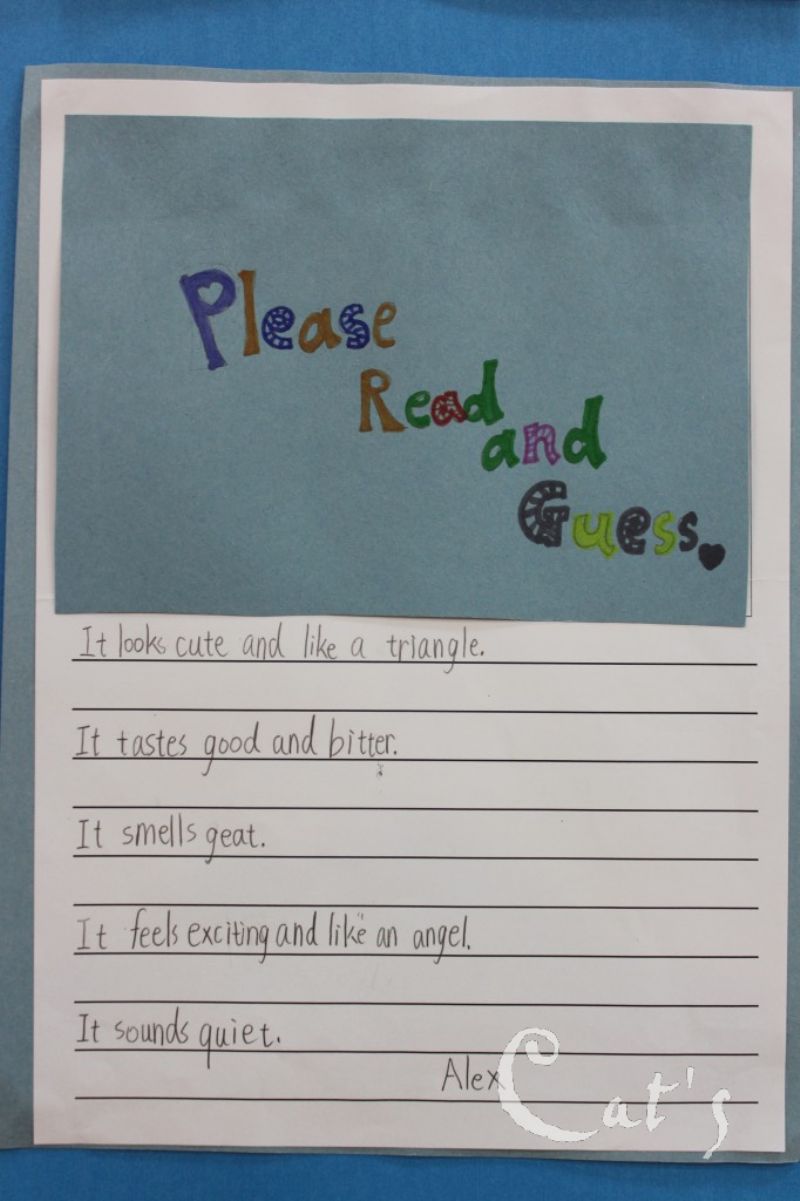 Please
Read
and
Guess.
It looks cute and like a triangle.
It tastes good and bitter.
It smells geat.
It feels exciting and like an angel.
It sounds quiet.
Alex
Cat's